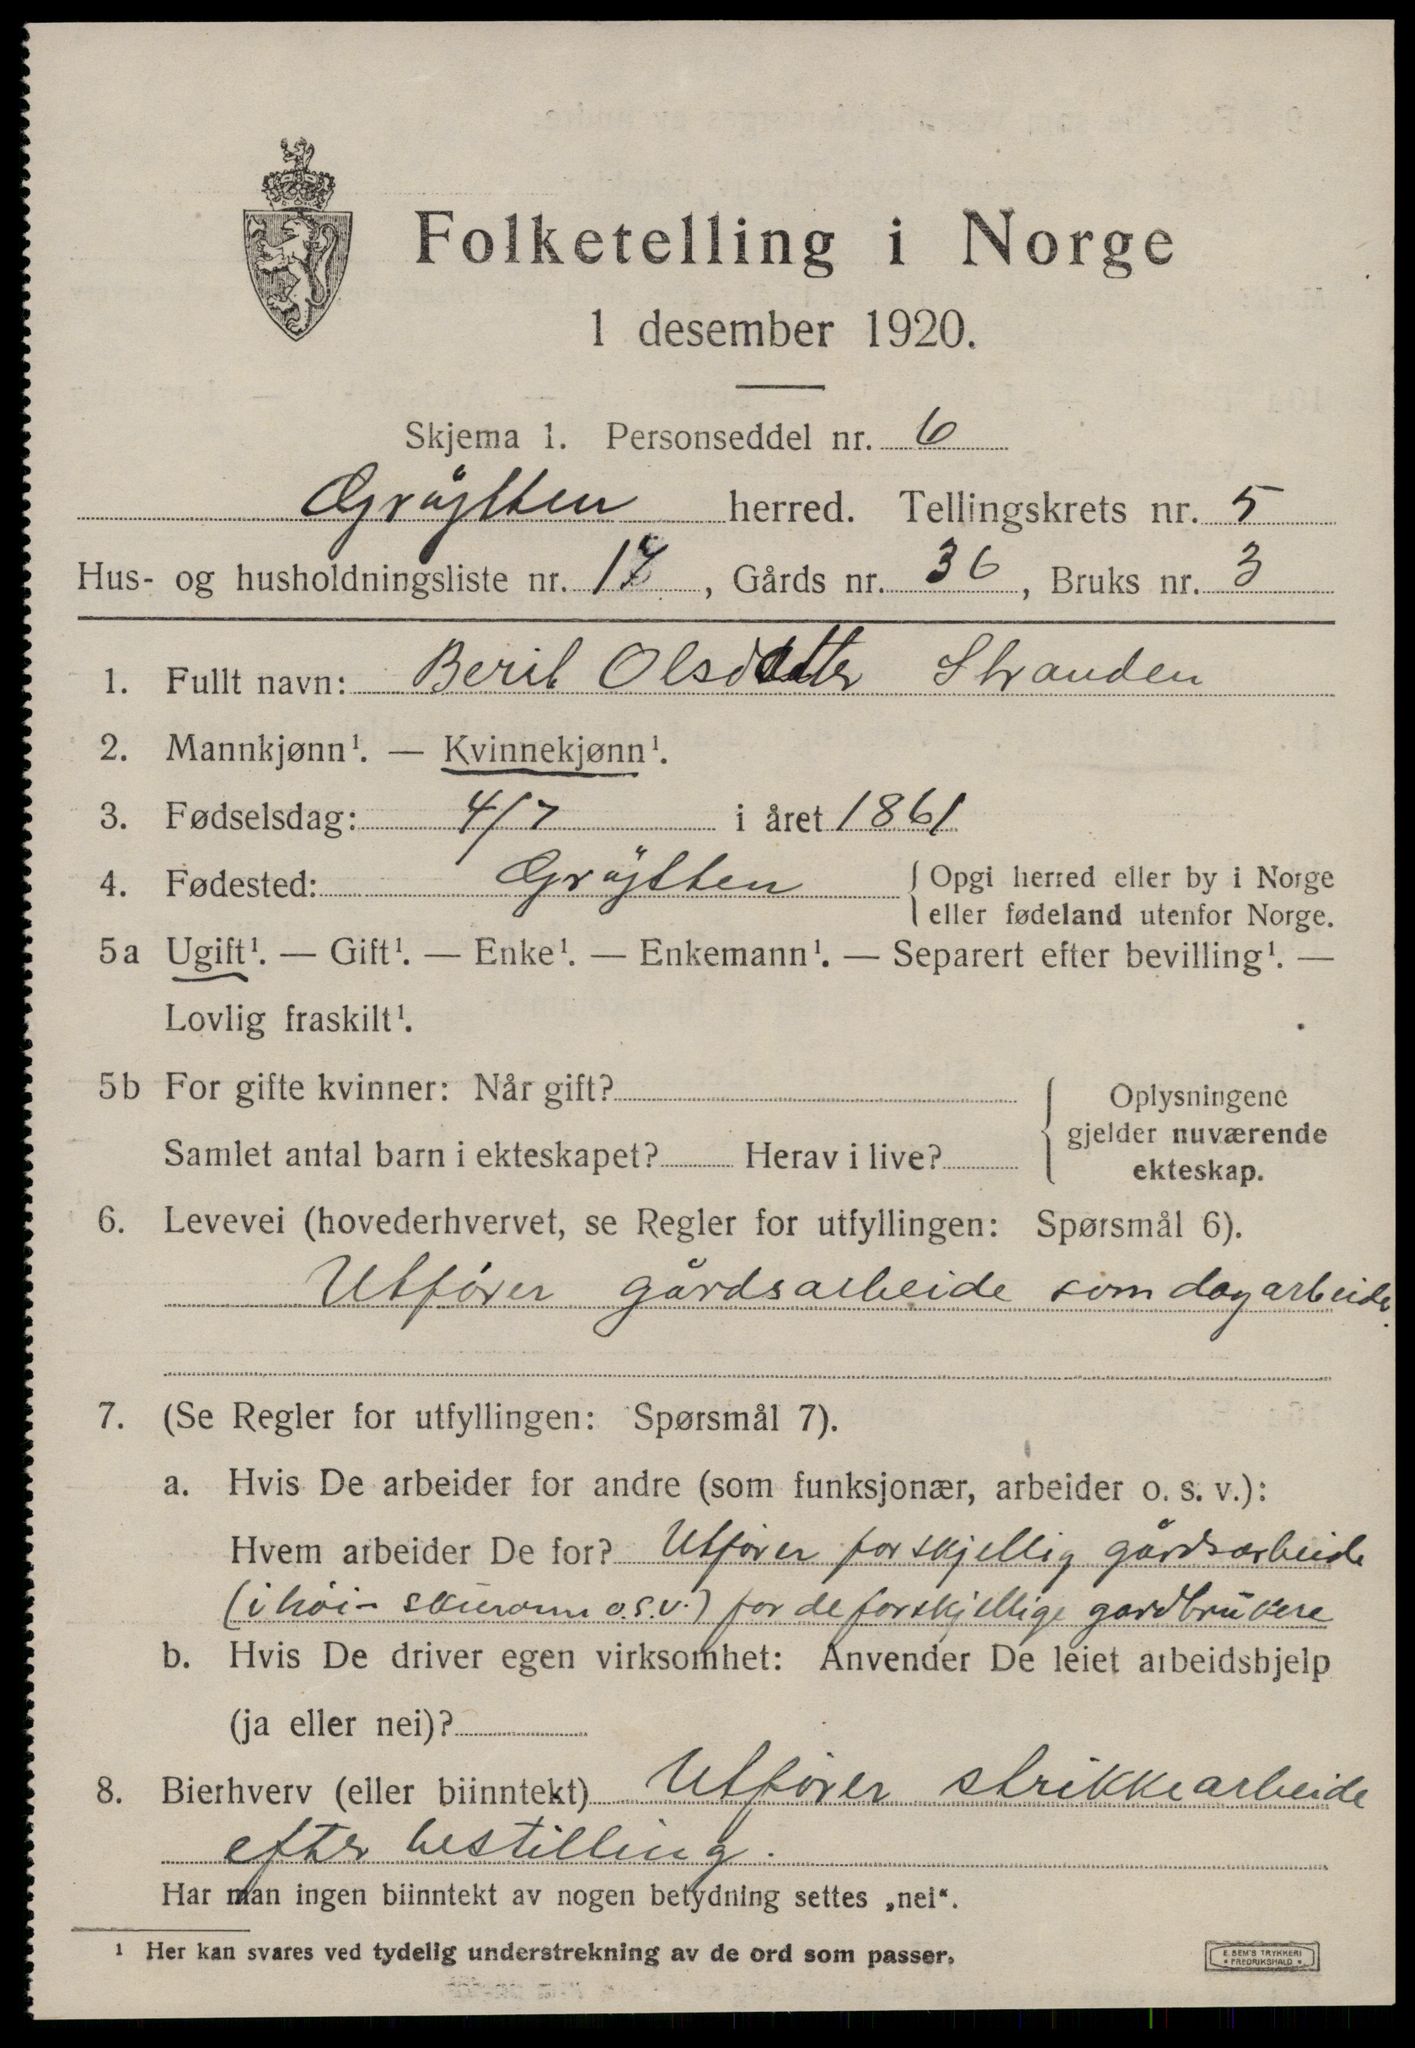 Folketelling i Norge
1 desember 1920.
Skjema 1. Personseddel nr. 6
Grøjtten herred. Tellingskrets nr. 5
Hus- og husholdningsliste nr. 17, Gårds nr. 36, Bruks nr. 3
1. Fullt navn: Berit Olsdatter Stranden
2. Mannkjønn¹. — Kvinnekjønn¹.
3. Fødselsdag: 4/7 i året 1861
4. Fødested: Grøjtten { Opgi herred eller by i Norge
eller fødeland utenfor Norge.
5a Ugift¹. — Gift¹. — Enke¹. — Enkemann¹. — Separert efter bevilling¹. —
Lovlig fraskilt¹.
5b For gifte kvinner: Når gift?
Samlet antal barn i ekteskapet? Herav i live?
{ Oplysningene
gjelder nuværende
ekteskap.
6. Levevei (hovederhvervet, se Regler for utfyllingen: Spørsmål 6).
Utfører gårdsarbeide som dagarbeide.
7. (Se Regler for utfyllingen: Spørsmål 7).
a. Hvis De arbeider for andre (som funksjonær, arbeider o. s. v.):
Hvem arbeider De for? Utfører forskjellig gårdsarbeide
(i høi- skuronn o.s.v.) for de forskjellige gardbrukere
b. Hvis De driver egen virksomhet: Anvender De leiet arbeidshjelp
(ja eller nei)?
8. Bierhverv (eller biinntekt) Utfører strikkearbeide
efter bestilling.
Har man ingen biinntekt av nogen betydning settes „nei“.
¹ Her kan svares ved tydelig understrekning av de ord som passer.
E. SEM'S TRYKKERI
FREDRIKSHALD